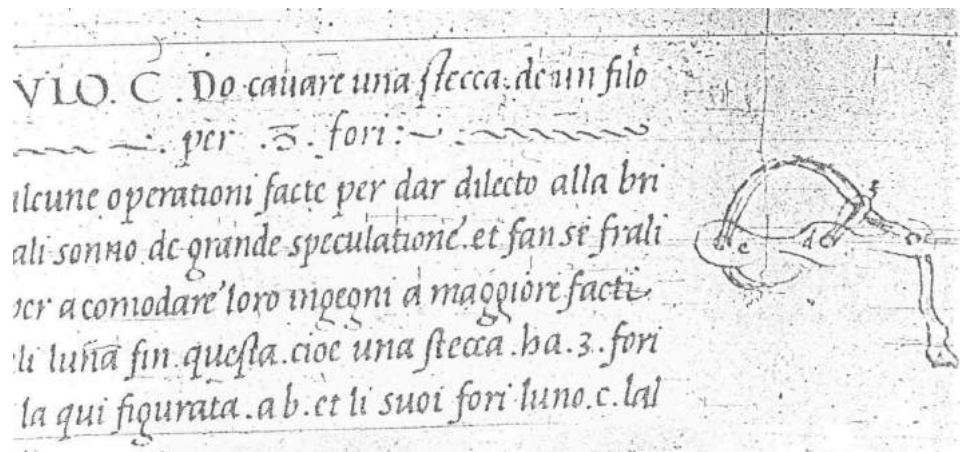 VLO. C. Do cavare una stecca. de un filo
per .3. fori:~
alcune operationi facte per dar dilecto alla bri
ali sonno de grande speculatione. et fan se frali
per acomodare loro ingegni a maggiore facti
li luna fin questa. cioe una stecca. ha. 3. fori
la qui figurata. a b. et li suoi fori luno. c. lal
c d